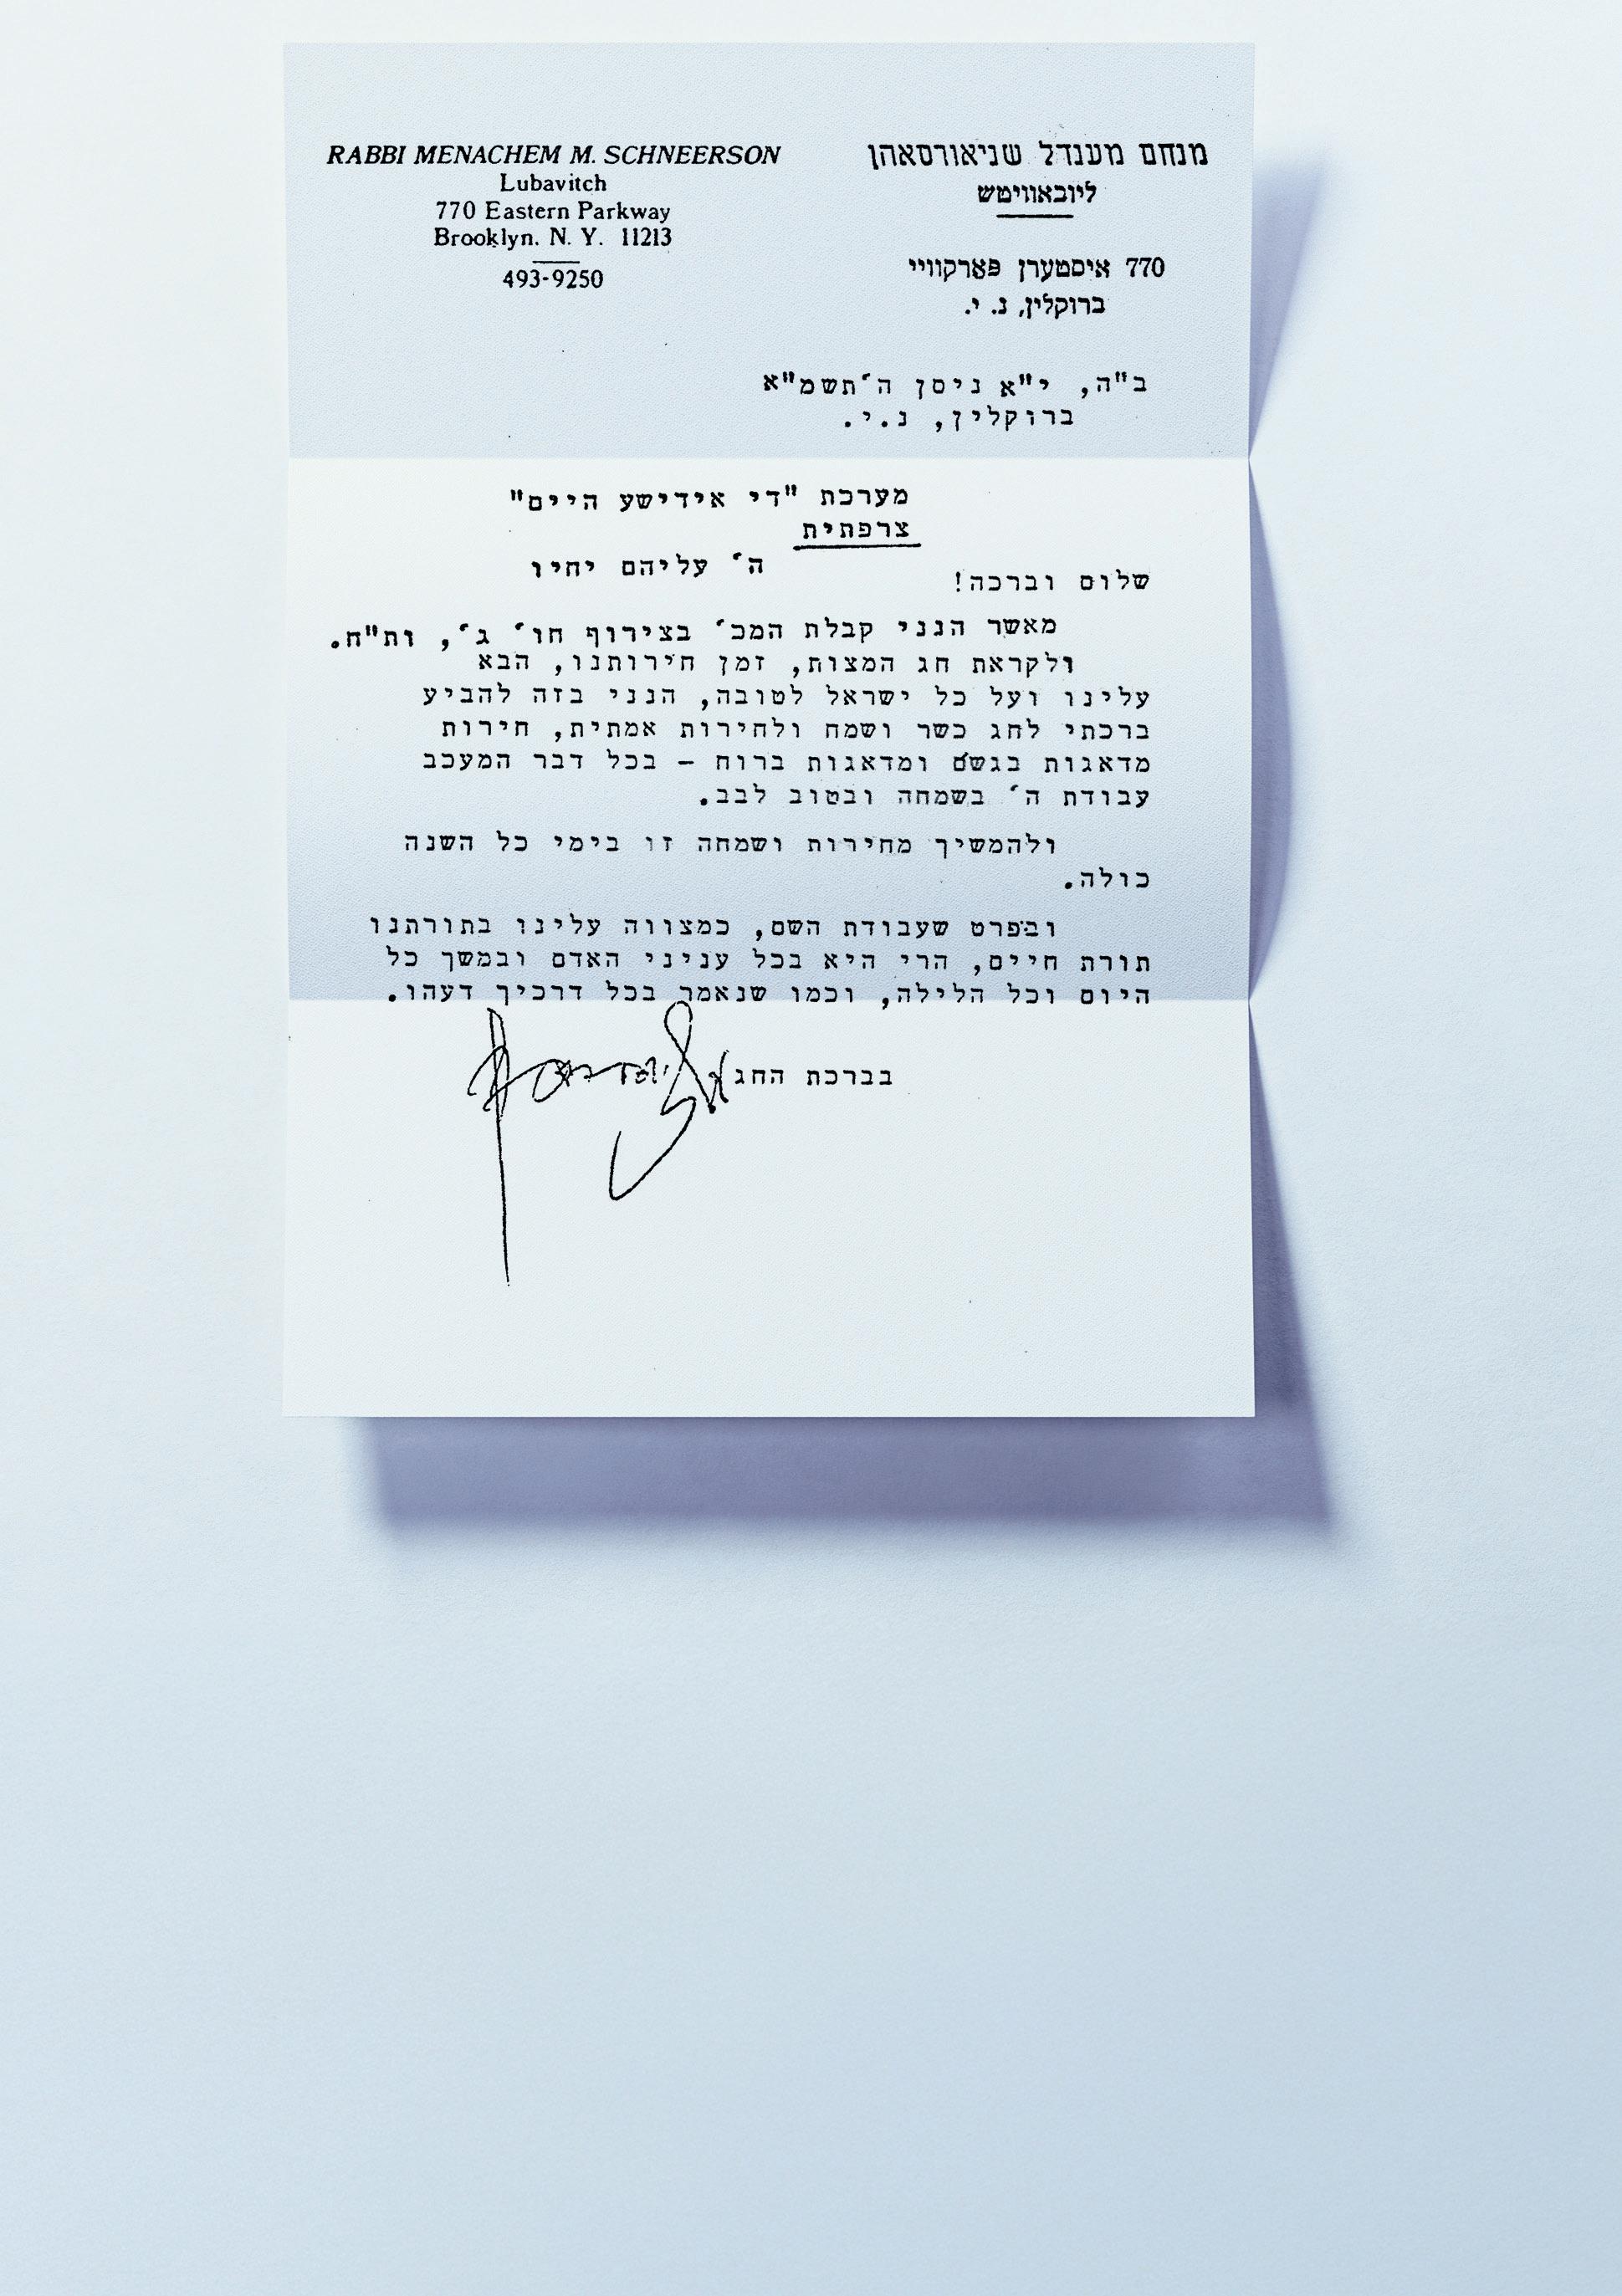 RABBI MENACHEM M. SCHNEERSON
Lubavitch
770 Eastern Parkway
Brooklyn. N. Y. 11213
493-9250
מנחם מענדל שניאורסאהן
ליובאוויטש
770 איסטערן פארקוויי
ברוקלין, נ. י.
ב"ה, י"א ניסן ה'תשמ"א
ברוקלין, נ.י.
מערכת "די אידישע היים"
צרפתית
ה' עליהם יחיו
שלום וברכה!
מאשר הנני קבלת המכ' בצירוף חו' ג', ות"ח.
ולקראת חג המצות, זמן חירותנו, הבא
עלינו ועל כל ישראל לטובה, הנני בזה להביע
ברכתי לחג כשר ושמח ולחירות אמתית, חירות
מדאגות בגשם ומדאגות ברוח - בכל דבר המעכב
עבודת ה' בשמחה ובטוב לבב.
ולהמשיך מחירות ושמחה זו בימי כל השנה
כולה.
ובפרט שעבודת השם, כמצווה עלינו בתורתנו
תורת חיים, הרי היא בכל עניני האדם ובמשך כל
היום וכל הלילה, וכמו שנאמר בכל דרכיך דעהו.
בברכת החג